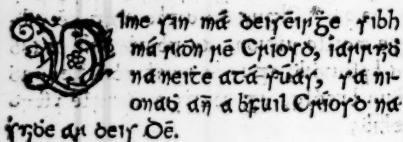 UIme sin má ḋeiséirġe sibh
má ráon ré Críosd, iarruid
na neiṫe atá súas, sa ni-
onad añ a ḃfuil Críosd na
ṡuiḋe ar deis Dé.